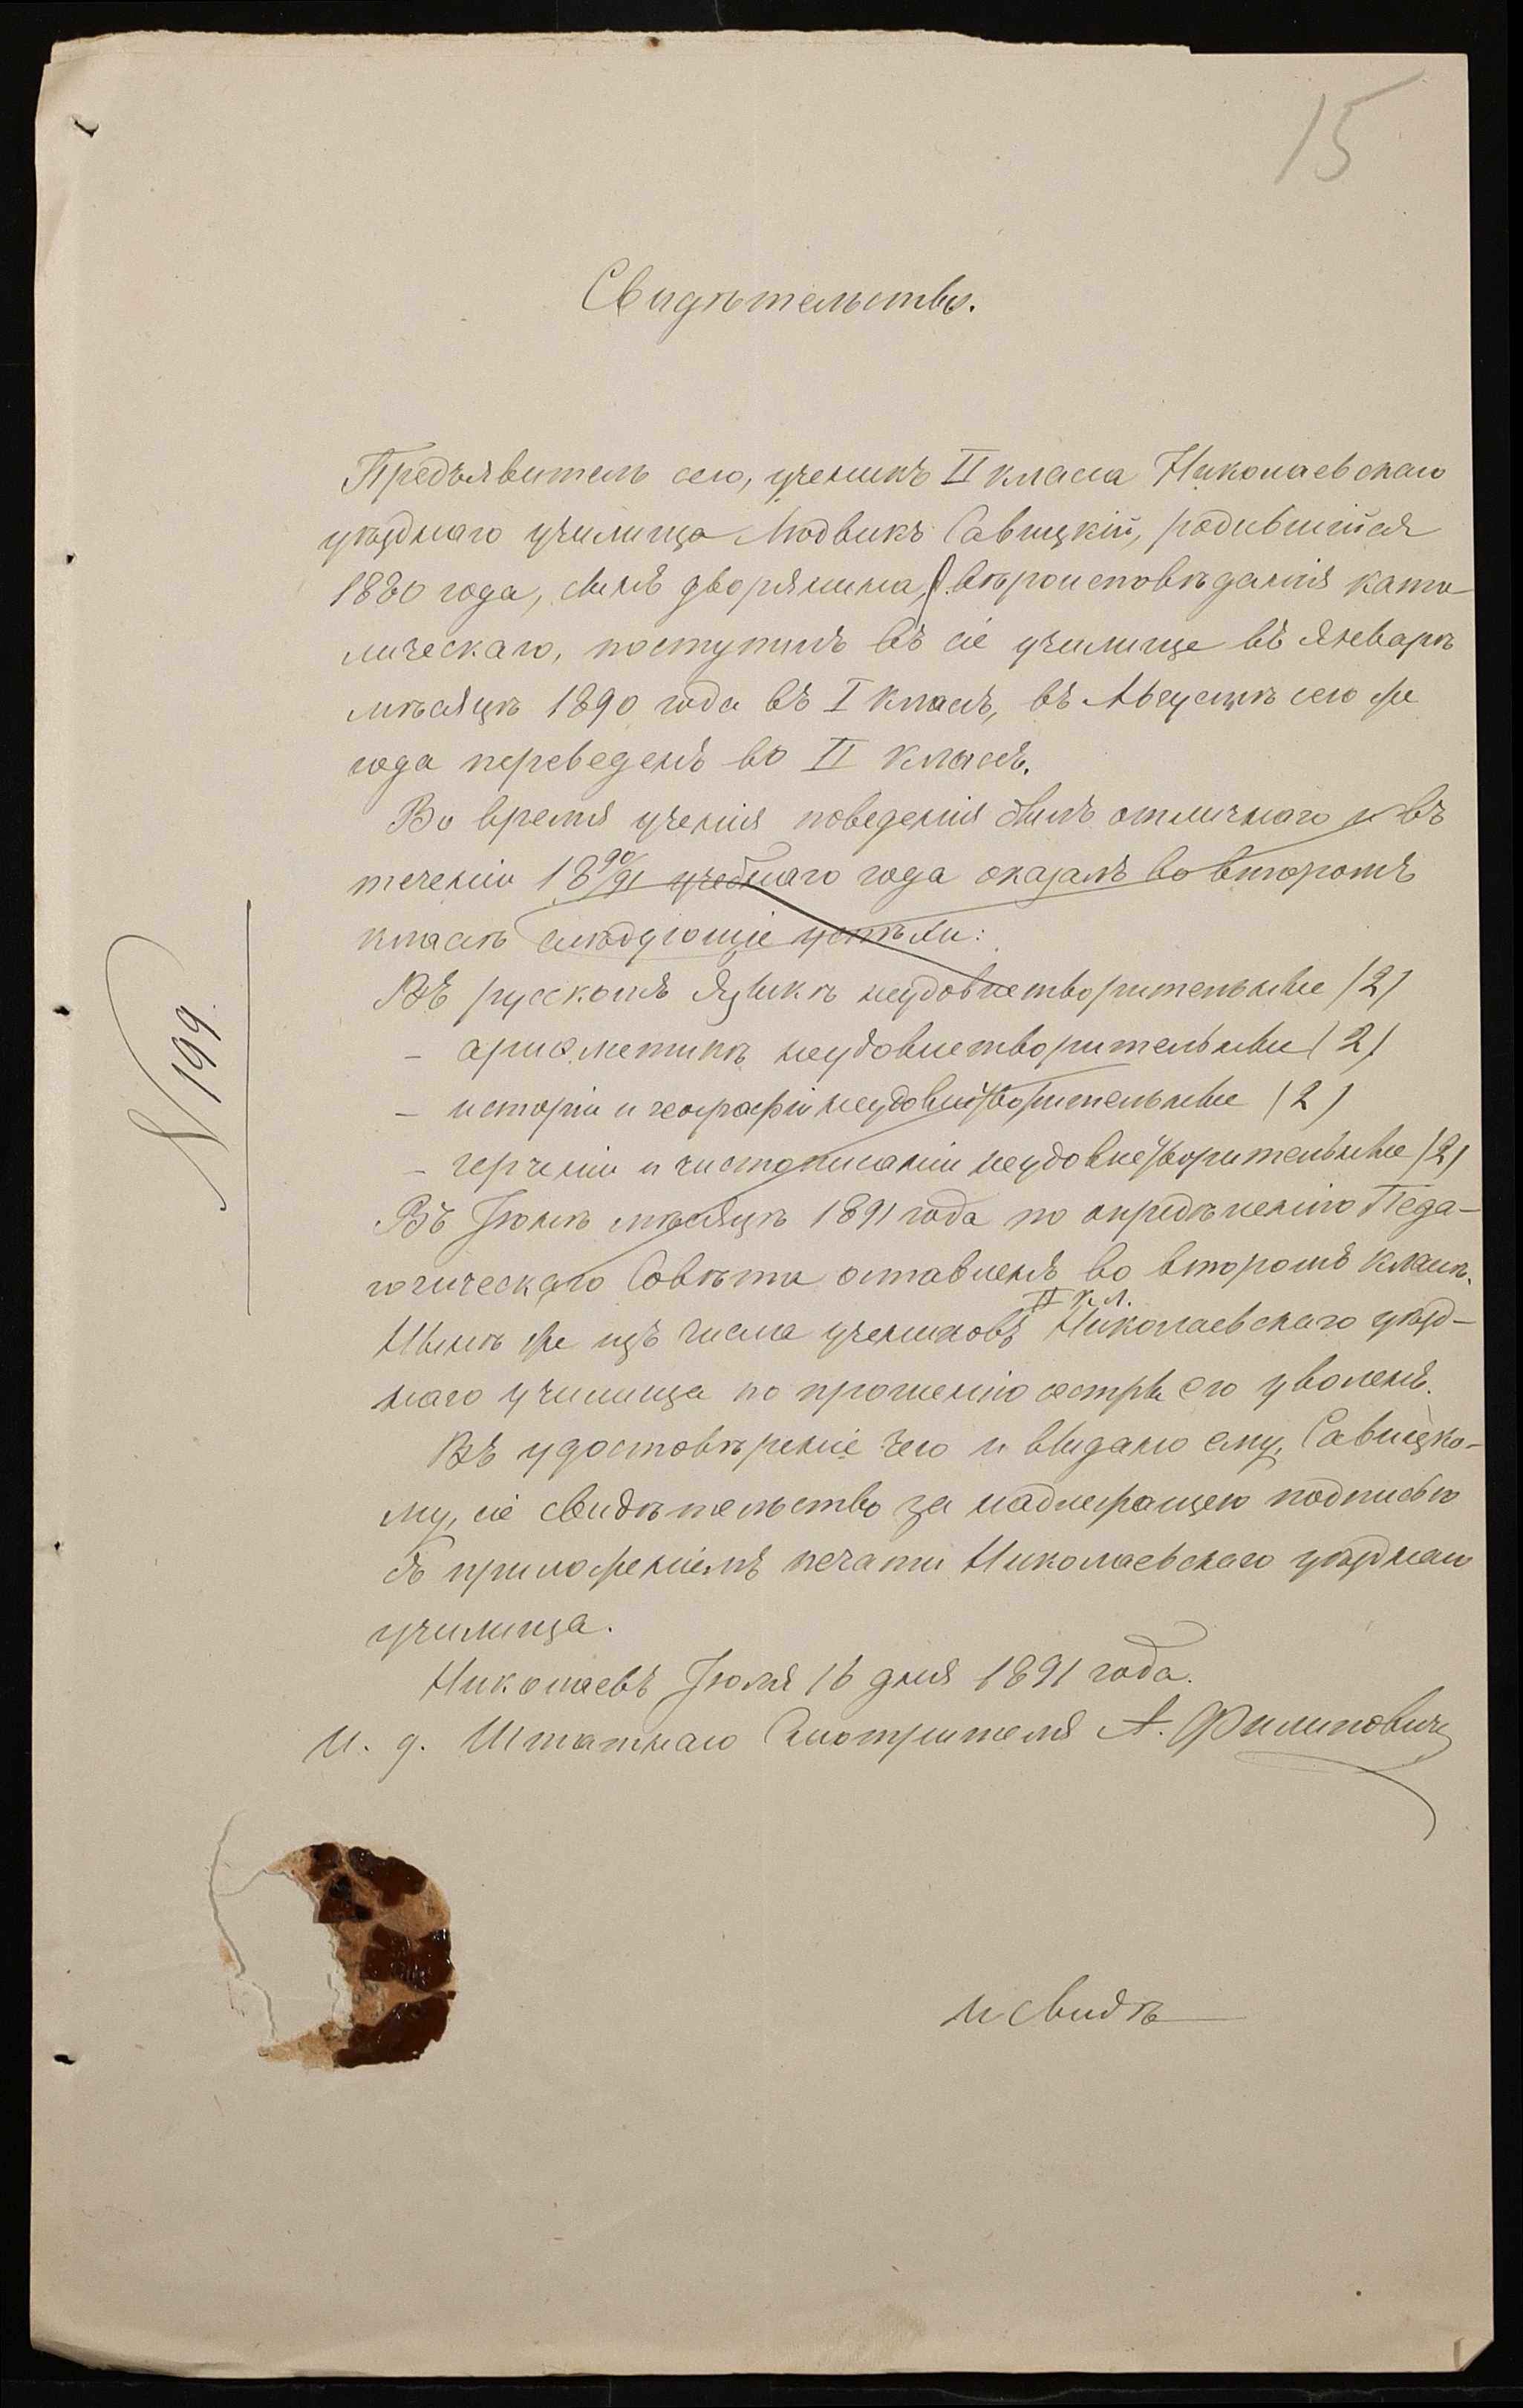 15
Свидѣтельство.
Предъявитель сего, ученикъ II класса Николаевскаго
уѣзднаго училища Людвикъ Савицкій, родившійся
1880 года, сынъ дворянина, вѣроисповѣданія като-
лическаго, поступилъ въ сіе училище въ Январѣ
мѣсяцѣ 1890 года въ I классъ, въ Августѣ сего же
года переведенъ во II классъ.
Во время ученія поведенія былъ отличнаго и въ
теченіи 18 90/91 учебнаго года оказалъ во второмъ
классѣ слѣдующіе успѣхи:
Въ русскомъ языкѣ неудовлетворительные (2)
- ариѳметикѣ неудовлетворительные (2)
- исторіи и географіи неудовлетворительные (2)
- черченіи и чистописаніи неудовлетворительные (2)
Въ Іюнѣ мѣсяцѣ 1891 года по опредѣленію Педа-
гогическаго Совѣта оставленъ во второмъ классѣ.
II кл.
Нынѣ же изъ числа учениковъ Николаевскаго уѣзд-
наго училища по прошенію сестры его уволенъ.
Въ удостовѣреніе чего и выдано ему, Савицко-
му, сіе свидѣтельство за надлежащею подписью
съ приложеніемъ печати Николаевскаго уѣзднаго
училища.
Николаевъ Іюля 16 дня 1891 года.
И. д. Штатнаго Смотрителя А. Филиповичъ
N 199
и свидѣ